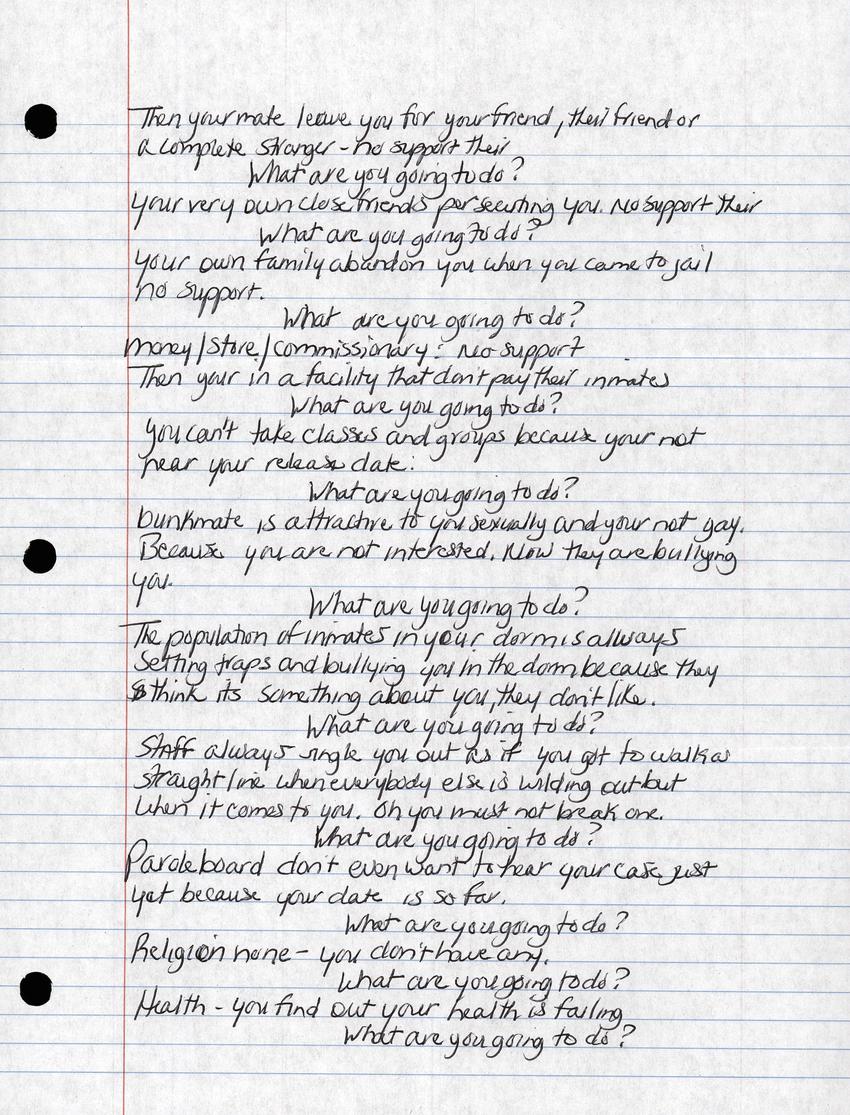 Then your mate leave you for your friend, their friend or
a complete stranger - no support their
What are you going to do?
Your very own close friends persecuting you. No support their
What are you going to do?
Your own family abandon you when you came to jail
no support.
What are you going to do?
Money/Store/Commissionary: No support
Then your in a facility that don't pay their inmates
What are you going to do?
You can't take classes and groups because your not
near your release date.
What are you going to do?
Bunkmate is attractive to you sexually and your not gay.
Because you are not interested. Now they are bullying
you.
What are you going to do?
The population of inmates in your dorm is allways
Setting traps and bullying you in the dorm because they
think its something about you, they don't like.
What are you going to do?
Staff always single you out as if you got to walk a
straight line when everybody else is wilding out but
when it comes to you. Oh you must not break one.
What are you going to do?
Parole board don't even want to hear your case just
yet because your date is so far.
What are you going to do?
Religion none - you don't have any.
What are you going to do?
Health - you find out your health is failing
What are you going to do?